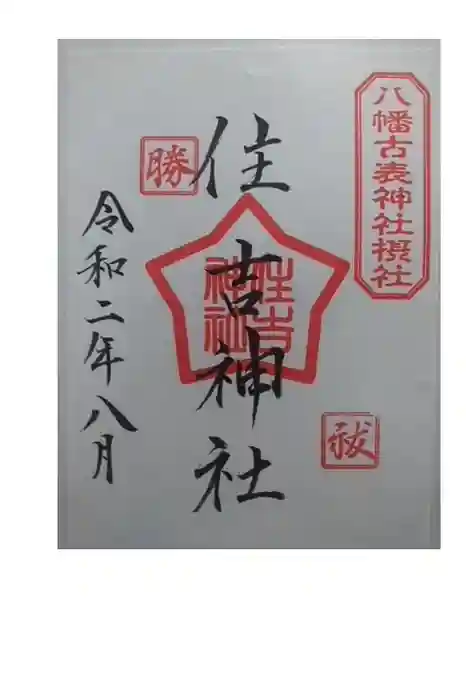 八幡古表神社摂社
住吉神社
住吉
神社
勝
祓
令和二年八月